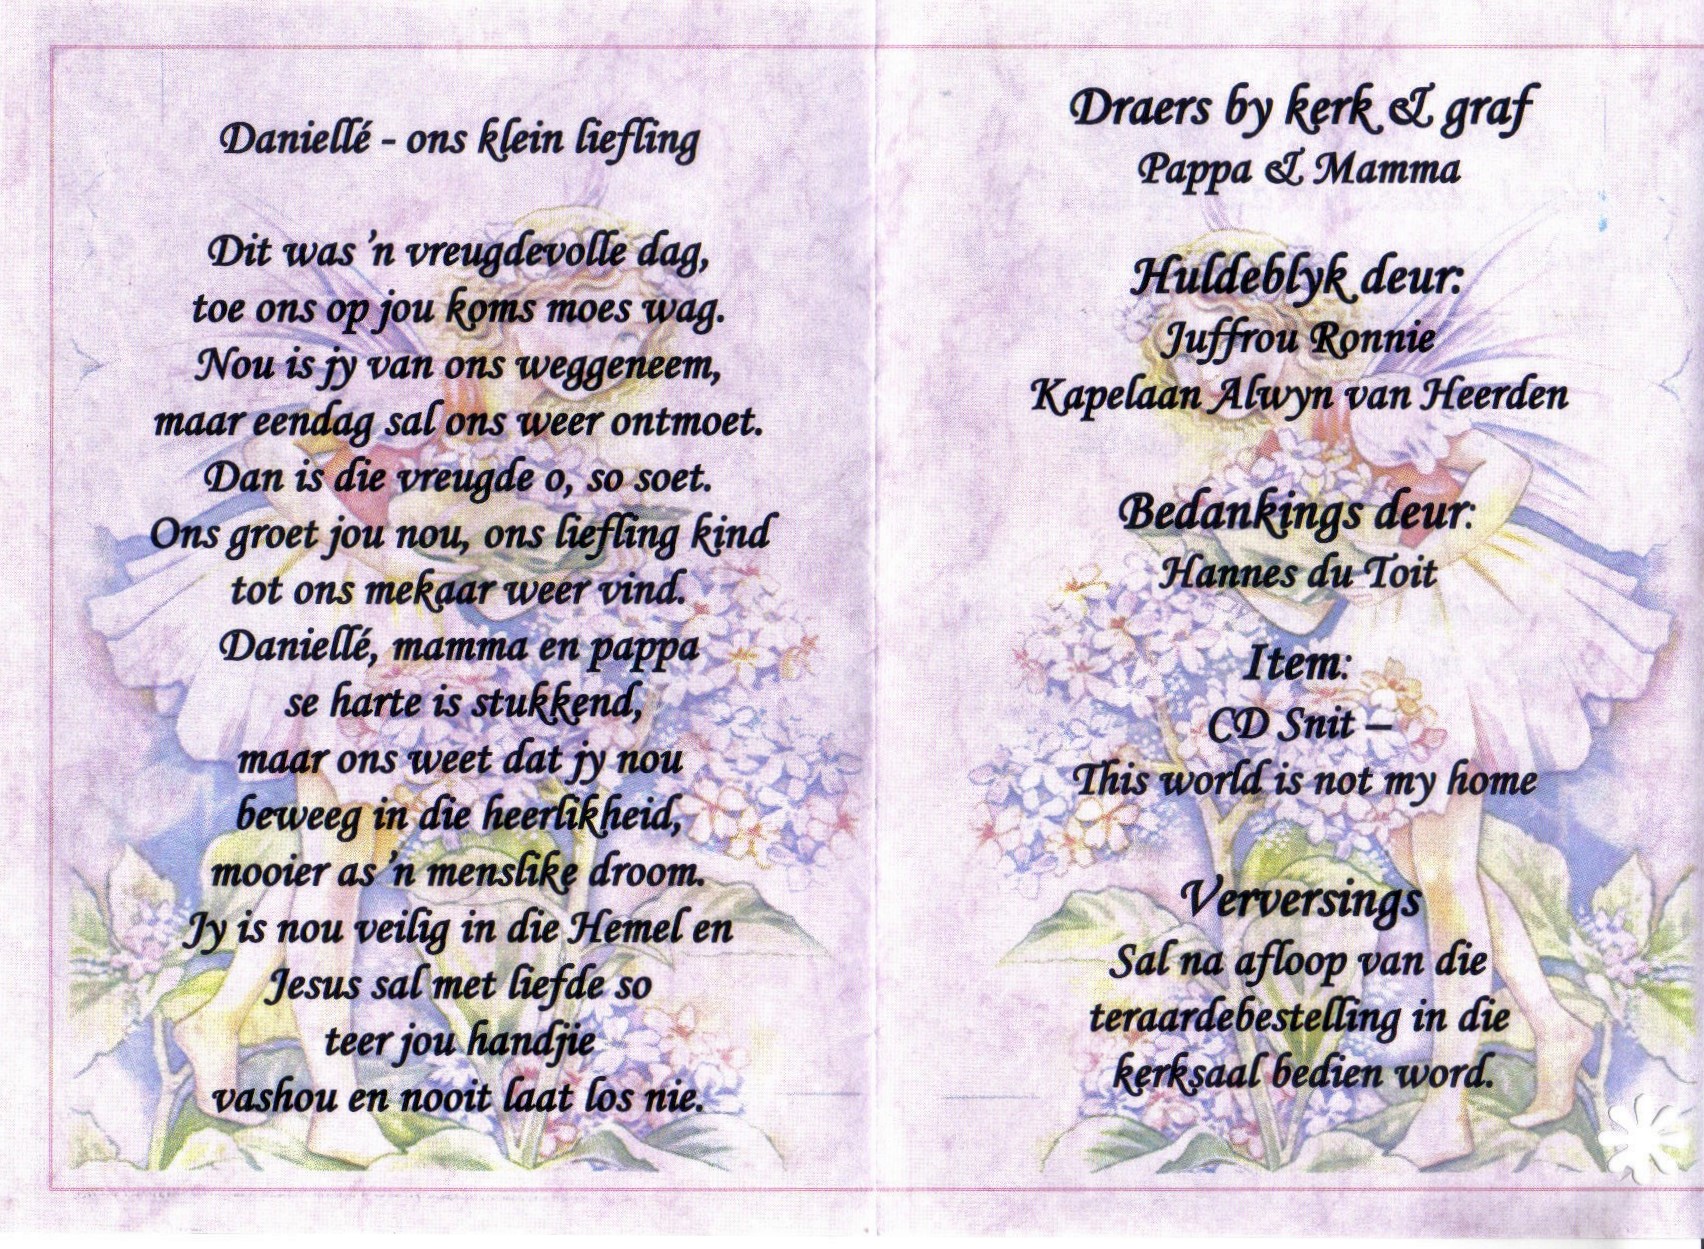 Daniellé - ons klein liefling
Dit was 'n vreugdevolle dag,
toe ons op jou koms moes wag.
Nou is jy van ons weggeneem,
maar eendag sal ons weer ontmoet.
Dan is die vreugde o, so soet.
Ons groet jou nou, ons liefling kind
tot ons mekaar weer vind.
Daniellé, mamma en pappa
se harte is stukkend,
maar ons weet dat jy nou
beweeg in die heerlikheid,
mooier as 'n menslike droom.
Jy is nou veilig in die Hemel en
Jesus sal met liefde so
teer jou handjie
vashou en nooit laat los nie.
Draers by kerk & graf
Pappa & Mamma
Huldeblyk deur:
Juffrou Ronnie
Kapelaan Alwyn van Heerden
Bedankings deur:
Hannes du Toit
Item:
CD Snit –
This world is not my home
Verversings
Sal na afloop van die
teraardebestelling in die
kerksaal bedien word.